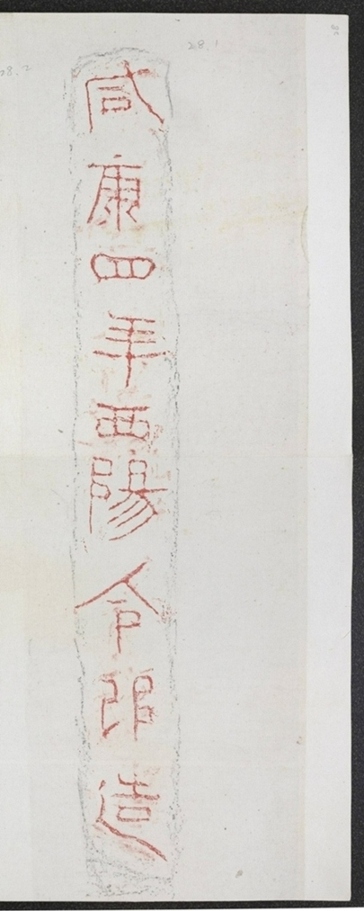 28.1
咸康四年西陽令造